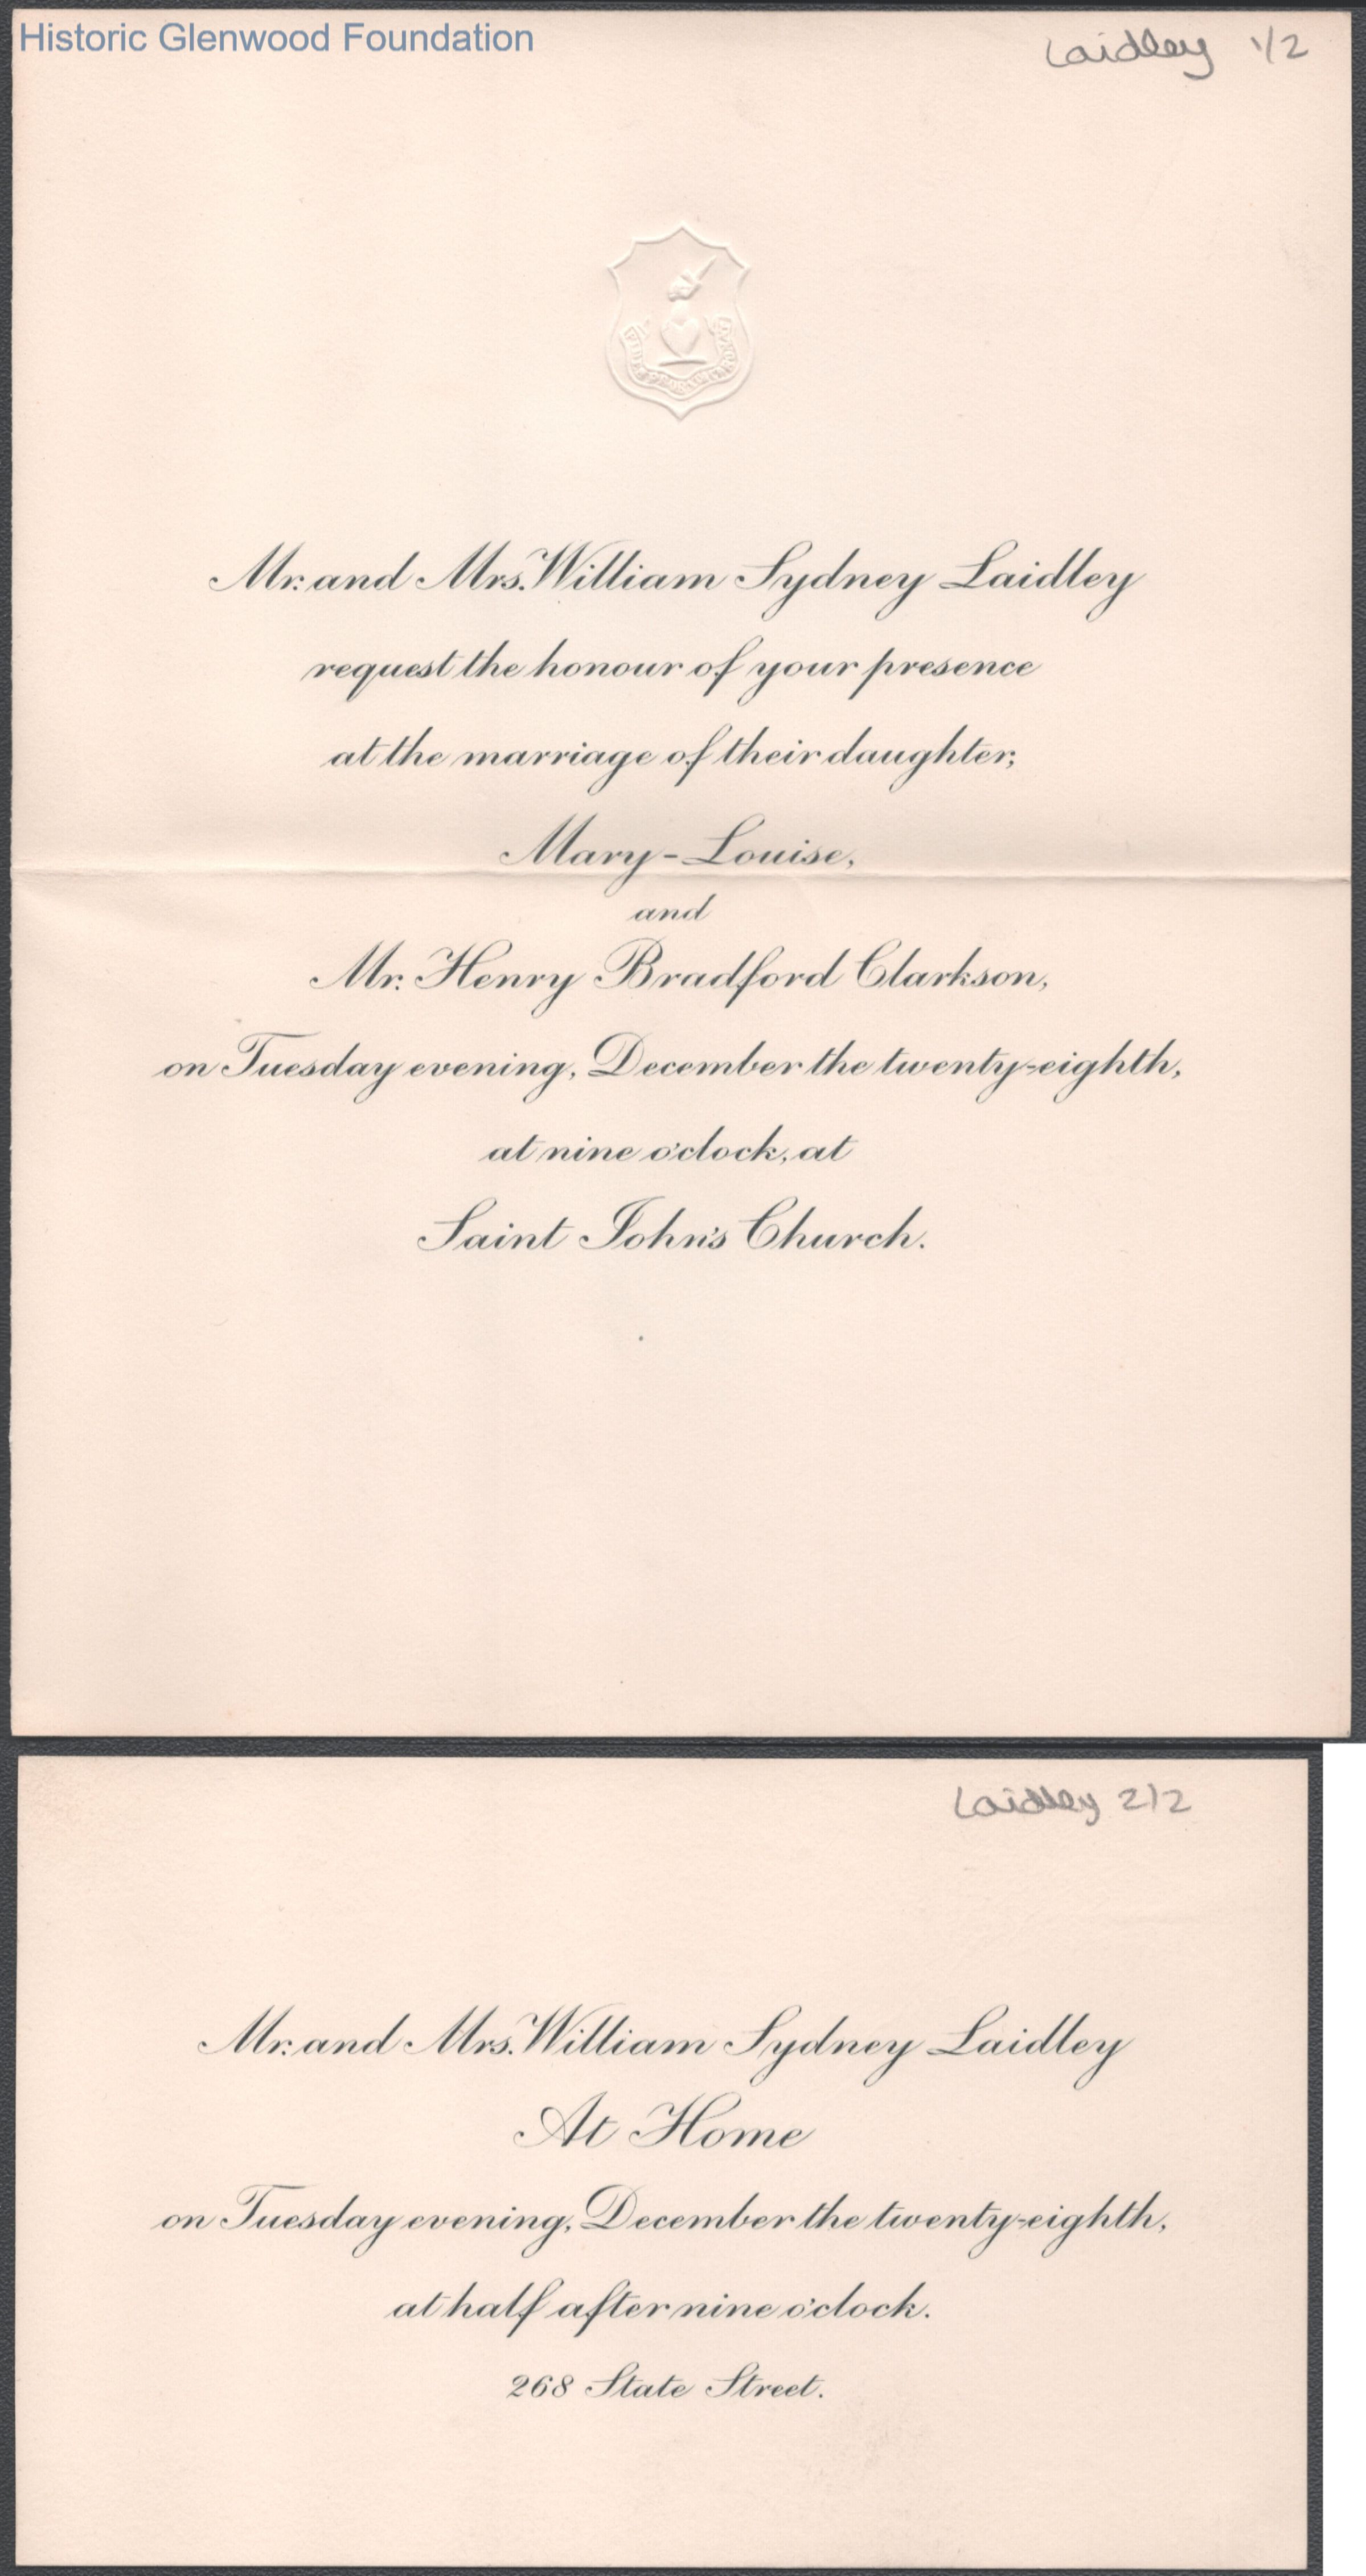 Historic Glenwood Foundation
Laidley 1/2
Mr. and Mrs. William Sydney Laidley
request the honour of your presence
at the marriage of their daughter,
Mary-Louise,
and
Mr. Henry Bradford Clarkson,
on Tuesday evening, December the twenty-eighth,
at nine o'clock, at
Saint John's Church.
Laidley 2/2
Mr. and Mrs. William Sydney Laidley
At Home
on Tuesday evening, December the twenty-eighth,
at half after nine o'clock.
268 State Street.